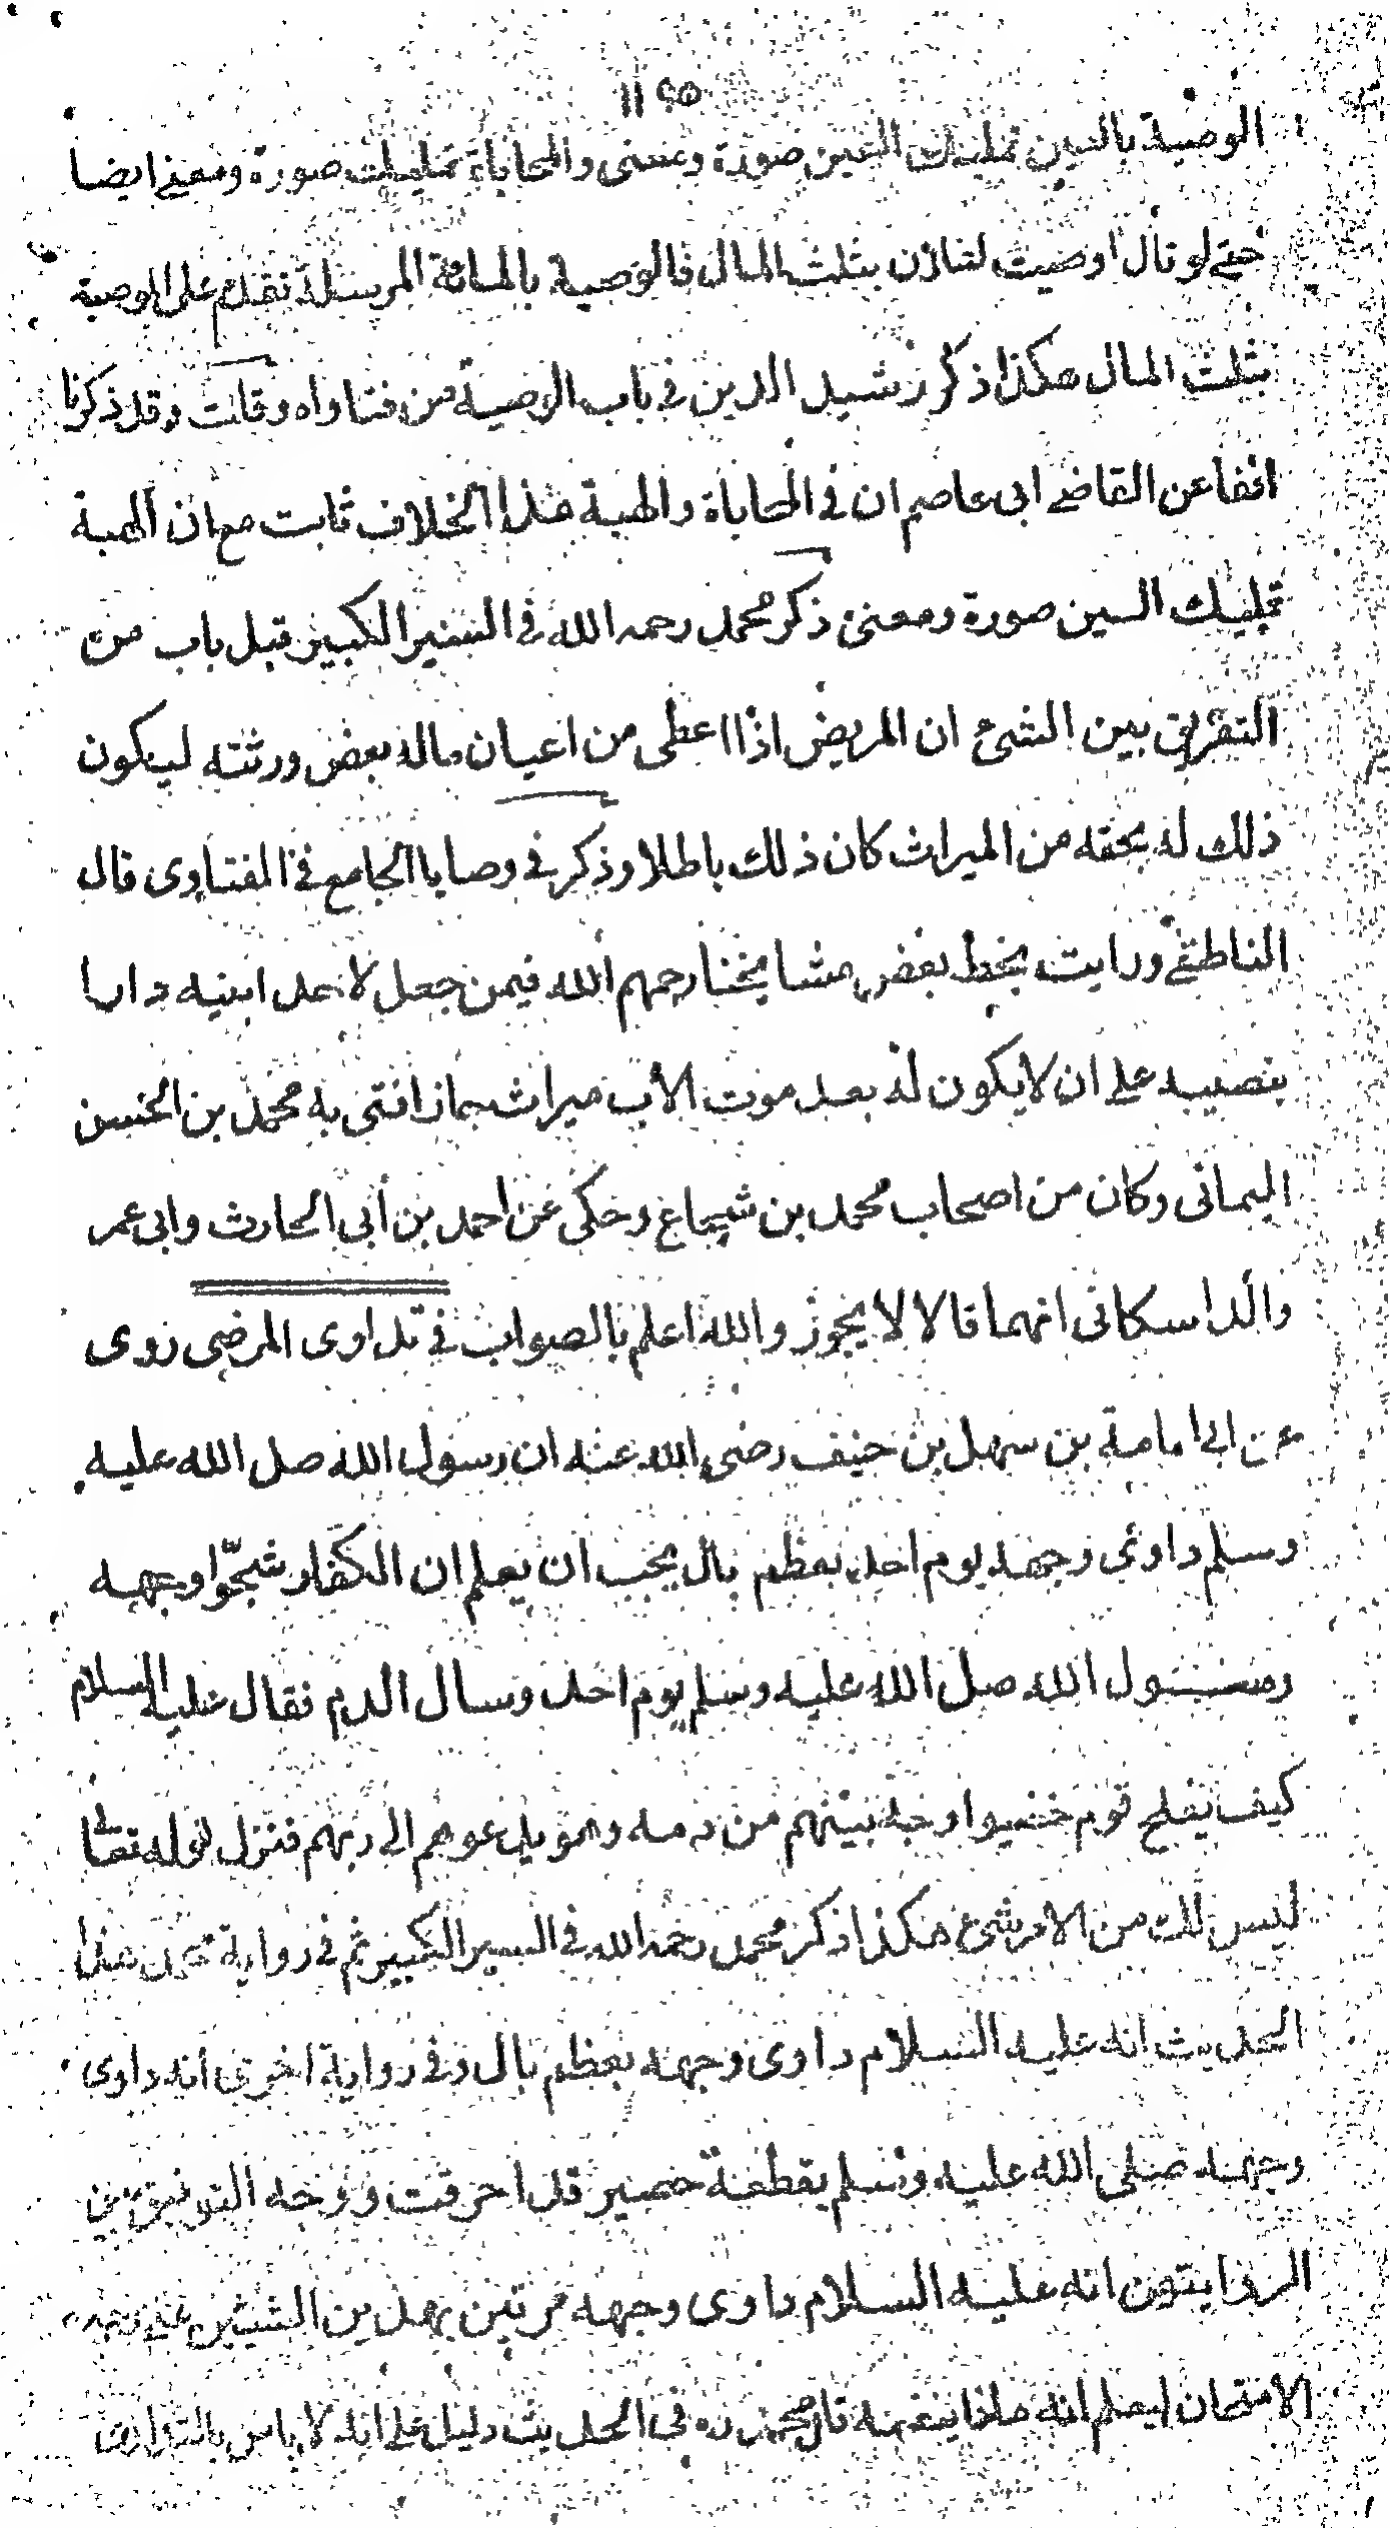 ١١٢٥
الوصية بالعين تمليك العين صورة ومعنى والمحاباة تمليك صورة ومعنى ايضا
حتى لو قال اوصيت لفلان بثلث المال فالوصية بالمائة المرسلة تقدم على الوصية
بثلث المال هكذا ذكر رشيد الدين في باب الوصية من فتاواه وقلت وقد ذكرنا
انفا عن القاضي ابى عاصم ان في المحاباة والهبة هذا الخلاف ثابت مع ان الهبة
تمليك العين صورة ومعنى ذكر محمد رحمه الله في السير الكبير قبل باب من
التفريق بين الشئ ان المريض اذا اعطى من اعيان ماله بعض ورثته ليكون
ذلك له بحقه من الميراث كان ذلك باطلا وذكر في وصايا الجامع في الفتاوى قال
الناطقي ورايت بخط بعض مشايخنا رحمهم الله فيمن جعل لاحد ابنيه دارا
بنصيبه على ان لا يكون له بعد موت الأب ميراث جاز افتى به محمد بن الحسن
اليمانى وكان من اصحاب محمد بن شجاع وحكى عن احمد بن أبي الحارث وابى عمر
والداسكانى انهما قالا لا يجوز والله اعلم بالصواب في تداوى المرضى روى
عن ابي امامة بن سهل بن حنيف رضى الله عنه ان رسول الله صل الله عليه
وسلم داوى وجهه يوم احد بعظم بال يجب ان يعلم ان الكفار شجّوا وجهه
رســول الله صل الله عليه وسلم يوم احد وسال الدم فقال عليه السلام
كيف يفلح قوم خضبوا وجه نبيهم من دمه وهو يدعوهم الى ربهم فنزل قوله تعالى
ليس لك من الامر شئ هكذا ذكر محمد رحمه الله في السير الكبير ثم في رواية هذا
الحديث انه عليه السلام داوى وجهه بعظم بال وفي رواية اخرى أنه داوى
وجهه صلى الله عليه وسلم بقطعة حصير قد احرقت ووجه التوفيق بين
الروايتين انه عليه السلام داوى وجهه مرتين بهذين الشيئين على وجه
الامتحان ليعلم انه ماذا ينفعه قال محمد ره في الحديث دليل على انه لا باس بالتداوى